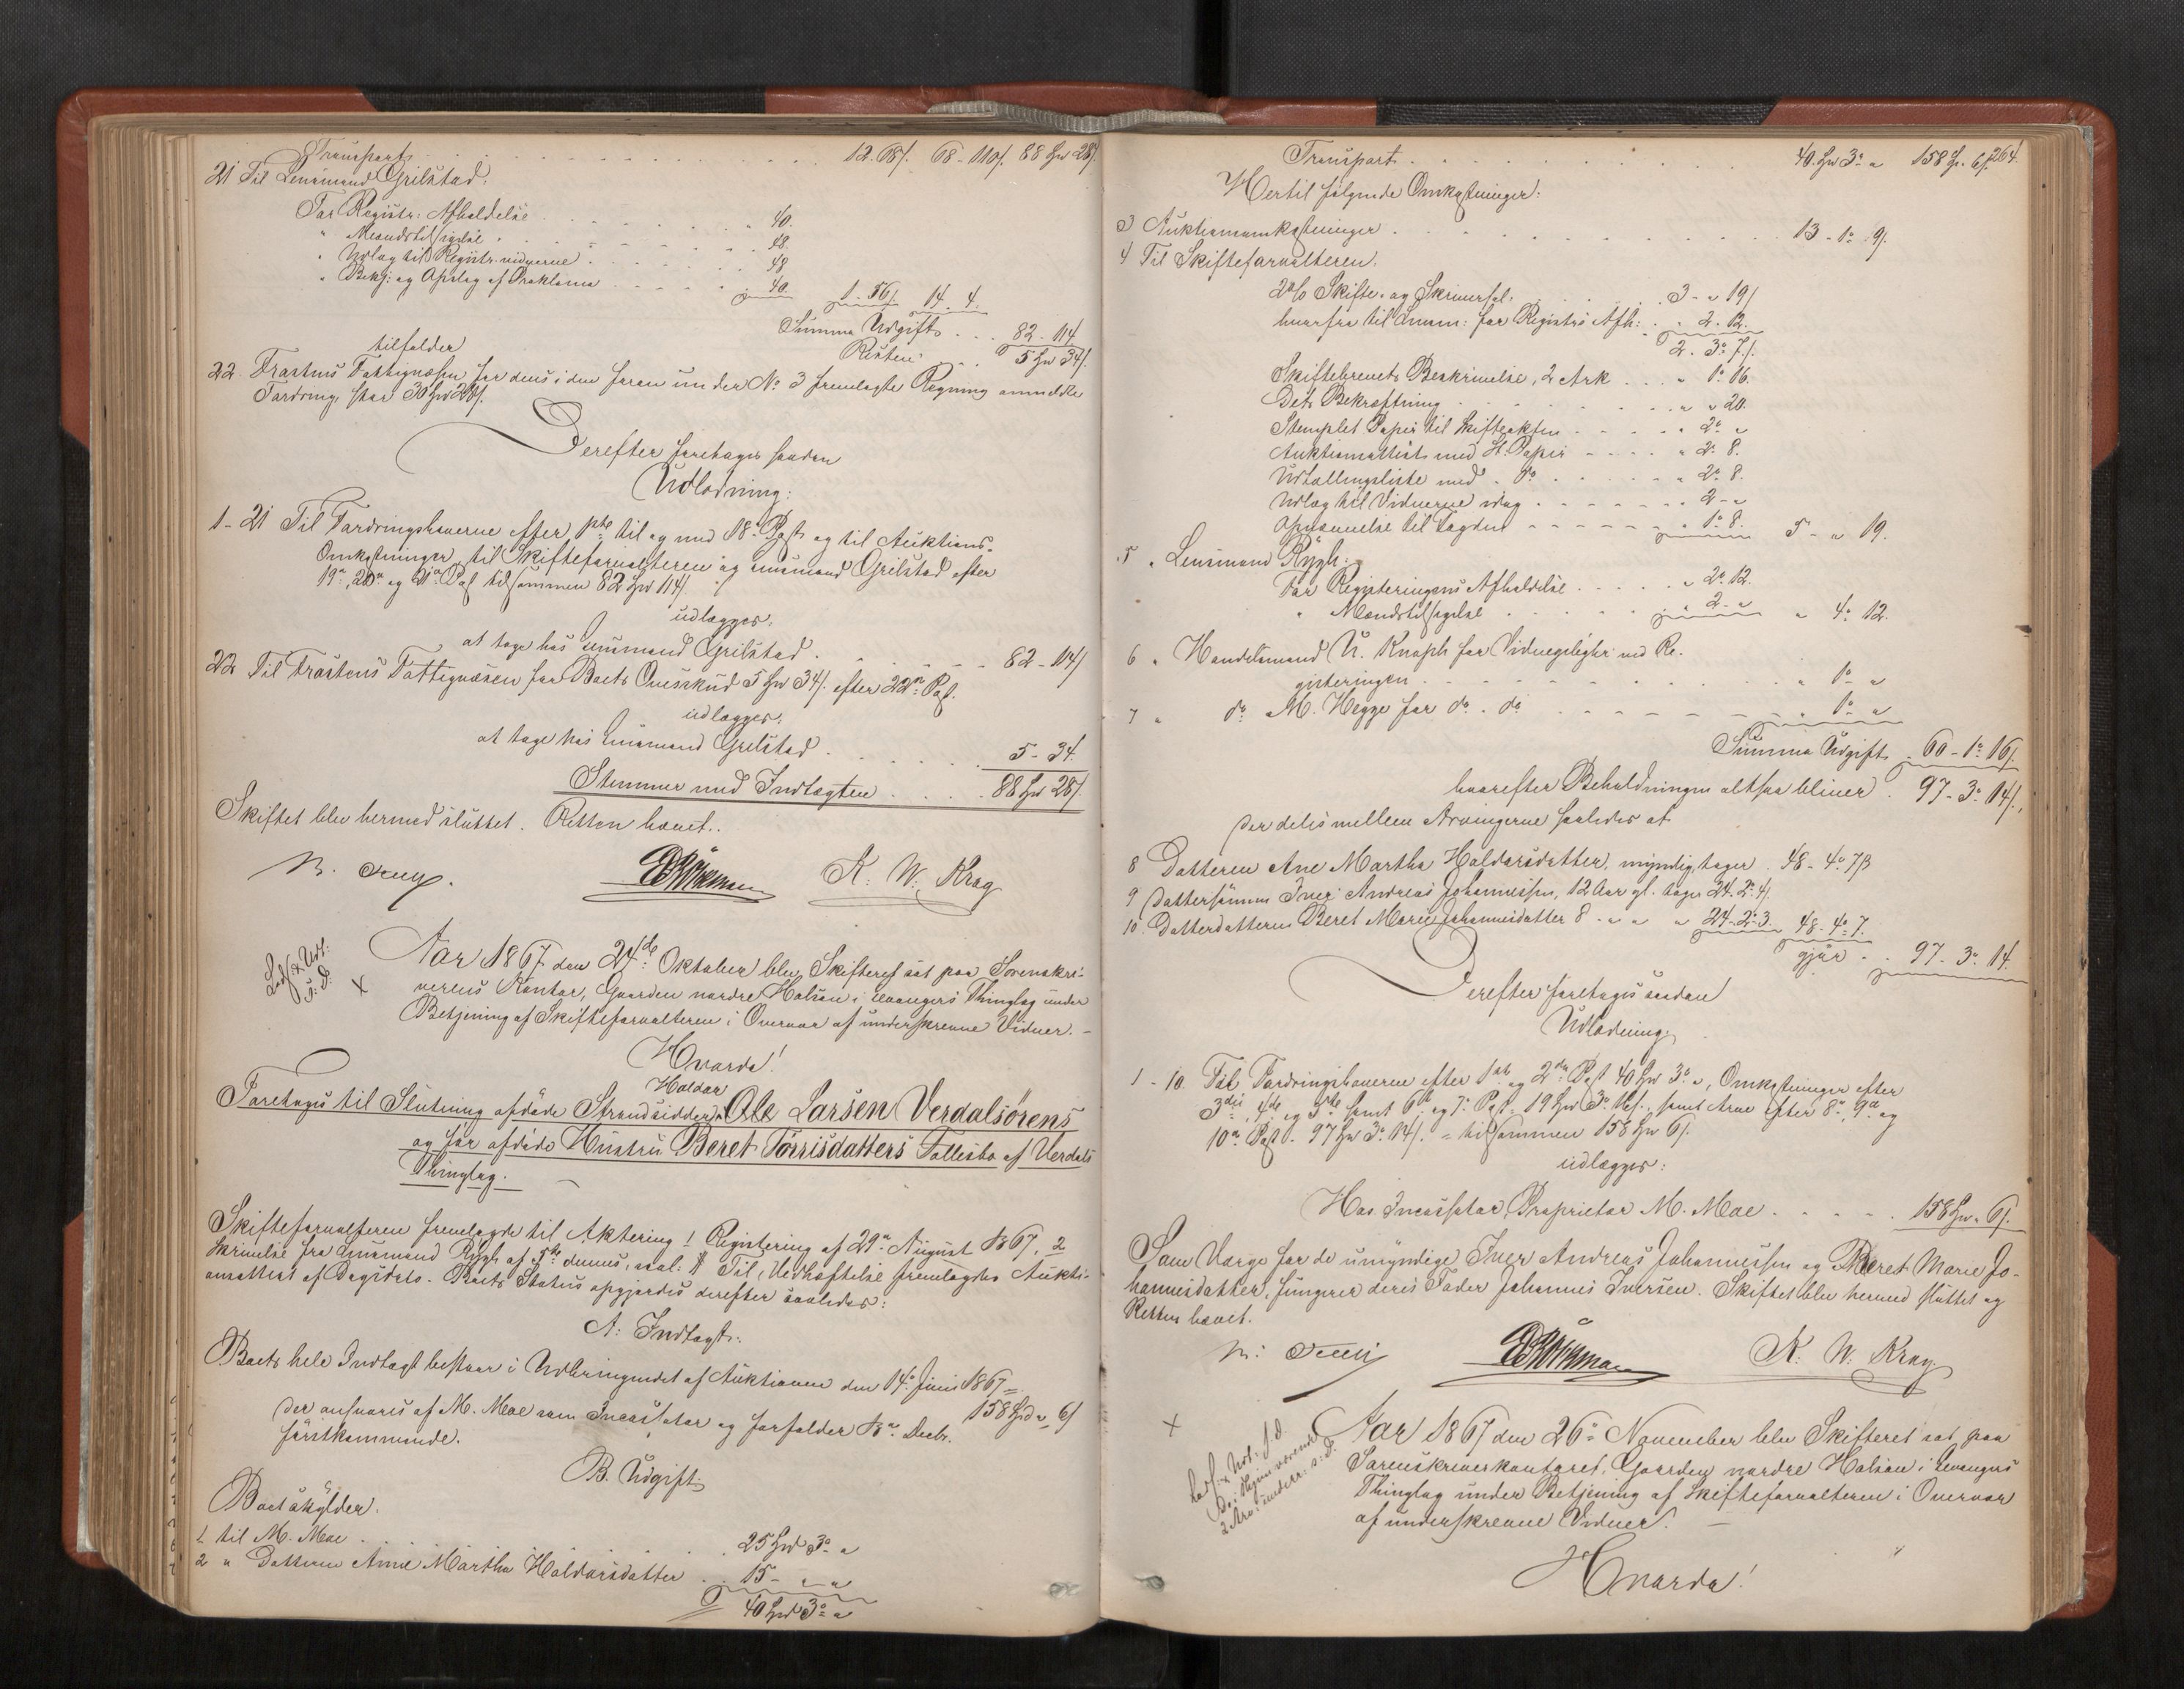 Transport . . . 12. 68/. 68 - 110/. 88 Spd 28/.
21 Til Lensmand Grilstad:
For Registr: Afholdelse . . . 40.
" Mændstilsigelse . . . 48.
" Udlæg til Registr. vidnerne . . . 48
" Bekj: og Opslag af Proklama . . . 40. 1 - 56/. 14 - 4.
Summa Udgift . . . 82 - 114
Resten . . . 5 Spd 34/.
tilfalder
22. Frostens Fattigvæsen for dens i den foran under No 3 fremlagte Regning anmeldte
Fordring, stor 30 Spd 28/.
Derefter foretoges saadan
Udlodning:
1-21 Til Fordringshaverne efter 1ste til og med 18de Post og til Auktions-
Omkostninger, til Skifteforvalteren og Lensmand Grilstad efter
19de, 20de og 21de Post tilsammen 82 Spd 114/.
udlægges:
at tage hos Lensmand Grilstad . . . 82 - 114/
22 Til Frostens Fattigvæsen for Boets Overskud 5 Spd 34/. efter 22de Post.
udlægges:
at tage hos Lensmand Grilstad . . . 5 - 34.
Stemmer med Indtægten . . . 88 Spd 28/.
Skiftet blev hermed sluttet. Retten hævet.
K. W. Krag
Aar 1867 den 24de Oktober blev Skifteret sat paa Sorenskri-
verens Kontor, Gaarden nordre Holsan i Levangers Thinglag under
Betjening af Skifteforvalteren i Overvær af underskrevne Vidner. -
Hvorda!
Haldor
Foretoges til Slutning afdøde Strandsidder Ole Larsen Verdalsørens
og før afdøde Hustru Beret Torrisdatters Fællesbo af Verdals
Thinglag.
Skifteforvalteren fremlagde til Aktering 1 Registering af 29de August 1867, 2
Skrivelse fra Lensmand Rygh af 5te dennes,
onsattest af Dagsdato. Boets Status opgjordes derefter saaledes:
A: Indtægt:
Boets hele Indtægt bestaar i Udbringendet af Auktionen den 14de Juni 1867 =
158 Spd " 6/
der ansvares af M. Moe som Incassator og forfalder Decbr.
førstkommende.
B. Udgift:
Boets Gjelder.
1. til M. Moe . . . 25 Spd 3o "
2 " Datteren Anne Martha Haldorsdatter . . . 15 - " "
40 Spd 3o "
Transport . . . 40. Spd 3o " 158 Sp. 6/. 264.
Hertil følgende Omkostninger:
3 Auktionsomkostninger . . . 13 - 1o 9/.
4 Til Skifteforvalteren:
2% Skifte- og Skriversal: . . . 3 - " 19/
hvorfra til Lensm: for Registrs Afh: . . . 2. 12.
2. 3o 7/.
Skiftebrevets Beskrivelse, 2 Ark . . . " 1o 16.
Dets Bekræftning . . . " " 20.
Stemplet Papir til Skifteakten . . . " 2o "
Auktionsattest med St. Papir . . . " 2o 8.
Udtællingsliste med do . . . " 2o 8.
Udlæg til Vidnerne idag . . . " 2 - "
Opnævnelse til Fogden . . . " 1o 8. 5 - " 19.
5 " Lensmand Rygh:
For Registeringens Afholdelse . . . " 2o 12.
" Mændstilsigelse . . . " 2 - " " 4o 12.
6 " Handelsmand U. Knoph for Vidnepligt ved Re-
gisteringen . . . " 1o - "
7 " do M. Hegge for do . do . . . " 1o - "
Summa Udgift . 60 - 1o 16/.
hvorefter Beholdningen altsaa bliver . 97 - 3o 14/.,
der deles mellem Arvingerne saaledes at
8 Datteren Ane Martha Haldorsdatter, myndig, tager . 48 - 4o 7ß
9 Dattersønnen Iver Andreas Johannessen, 12 Aar gl. tager 24. 2o 4/.
10. Datterdatteren Beret Marie Johannesdatter 8 - " " " 24 - 2o 3. 48 - 4o 7.
gjør . . 97 - 3o 14.
Derefter foretoges saadan
Udlodning:
1 - 10 Til Fordringshaverne efter 1ste og 2den Post 40 Spd 3o ", Omkostninger efter
3die, 4de og 5te samt 6te og 7de Post 19 Spd samt Arve efter 8de, 9de og
10de Post. 97 Spd 3o 14/. = tilsammen 158 Spd 6/.
udlægges:
Hos Incassator, Proprietær M. Moe . . . 158 Spd " 6/.
Som Værge for de umyndige Iver Andreas Johannessen og Beret Marie Jo-
hannesdatter, fungerer deres Fader Johannes Iversen. Skiftet blev hermed sluttet og
Retten hævet.
K. W. Krag
Aar 1867 den 26de November blev Skifteret sat paa
Sorenskriverkontoret, Gaarden nordre Holsan i Levangers
Thinglag under Betjening af Skifteforvalteren i Overvær
af underskrevne Vidner. -
Hvorda!